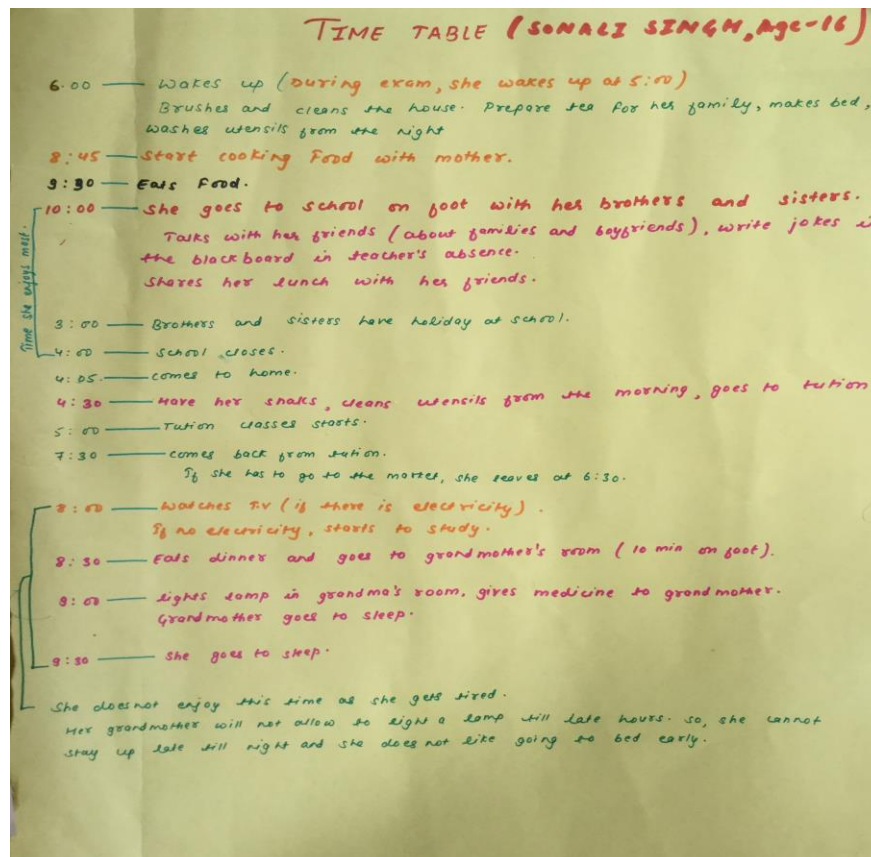 TIME TABLE (SONALI SINGH, Age-16)
6.00 — Wakes up (During exam, she wakes up at 5:00)
Brushes and cleans the house. Prepare tea for her family, makes bed,
washes utensils from the night
8:45 — Start cooking Food with mother.
9:30 — Eats Food.
10:00 — She goes to school on foot with her brothers and sisters.
Talks with her friends (about families and boyfriends), write jokes i
the blackboard in teacher's absence.
Shares her lunch with her friends.
Time she enjoys most.
3:00 — Brothers and sisters have holiday at school.
4:00 — School closes.
4:05. — comes to home.
4:30 — Have her snaks, cleans utensils from the morning, goes to tution
5:00 — Tution classes starts.
7:30 — comes back from tution.
If she has to go to the market, she leaves at 6:30.
8:00 — Watches T.V (if there is electricity).
If no electricity, starts to study.
8:30 — Eats dinner and goes to grandmother's room (10 min on foot).
9:00 — lights lamp in grandma's room, gives medicine to grandmother.
Grandmother goes to sleep.
9:30 — She goes to sleep.
She does not enjoy this time as she gets tired.
Her grandmother will not allow to light a lamp till late hours. so, she cannot
stay up late till night and she does not like going to bed early.